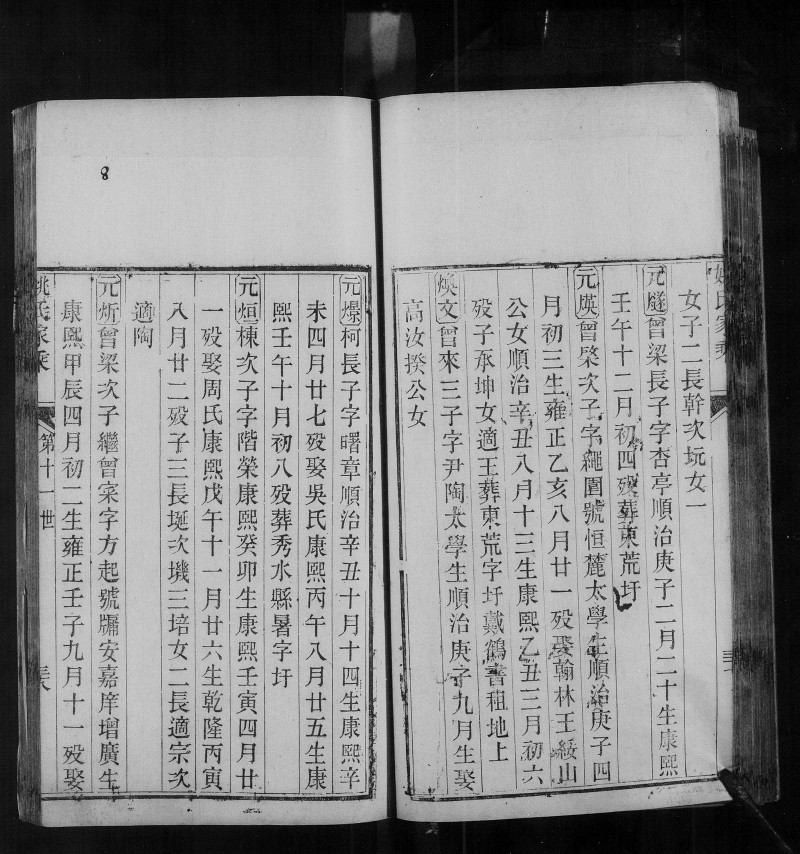 姚氏家乘
女子二長幹次玩女一
元燧曾梁長子字杏亭順治庚子二月二十生康熙
壬午十二月初四歿葬東荒圩
元煐曾棨次子字繩圍號恒麓太學生順治庚子四
月初三生雍正乙亥八月廿一歿娶翰林王綏山
公女順治辛丑八月十三生康熙乙丑三月初六
歿子承坤女適王葬東荒字圩戴鶴書租地上
煥文曾來三子字尹陶太學生順治庚子九月生娶
高汝揆公女
8
元爆柯長子字曙章順治辛丑十月十四生康熙辛
未四月廿七歿娶吳氏康熙丙午八月廿五生康
熙壬午十月初八歿葬秀水縣暑字圩
元烜棟次子字階榮康熙癸卯生康熙壬寅四月廿
一歿娶周氏康熙戊午十一月廿六生乾隆丙寅
八月廿二歿子三長埏次璣三培女二長適宗次
適陶
元炘曾梁次子繼曾寀字方起號牖安嘉庠增廣生
康熙甲辰四月初二生雍正壬子九月十一歿娶
姚氏家乘
第十一世
三十八